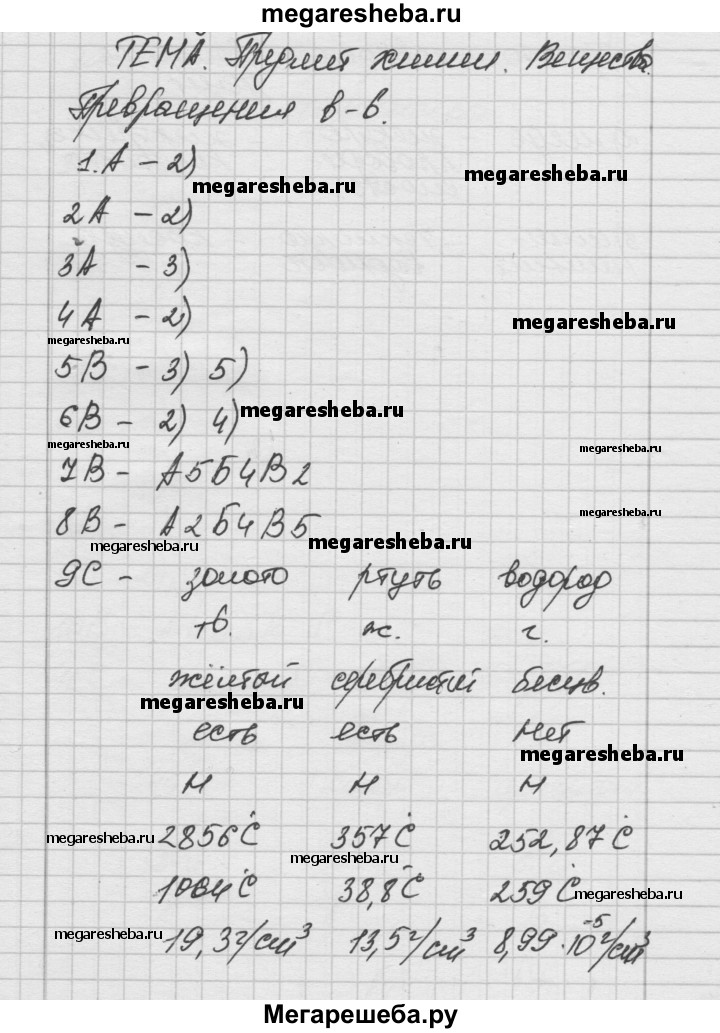 megaresheba.ru
ТЕМА. Предмет химии. Вещества.
Превращения в-в.
1.А - 2)
megaresheba.ru
megaresheba.ru
2А - 2)
3А - 3)
4А - 2)
megaresheba.ru
megaresheba.ru
5В - 3) 5)
6В - 2) 4)
megaresheba.ru
megaresheba.ru
megaresheba.ru
7В - А5Б4В2
8В - А2Б4В5
megaresheba.ru
megaresheba.ru
megaresheba.ru
9С - золото ртуть водород
тв. ж. г.
жёлтый серебристый бесцв.
megaresheba.ru
есть есть нет
megaresheba.ru
М М М
megaresheba.ru 2856°С 357°С 252,87°С
megaresheba.ru
1064°С 38,8°С 259°С
megaresheba.ru
megaresheba.ru
19,3г/см³ 13,5г/см³ 8,99·10⁻⁵г/см³
Мегарешеба.ру